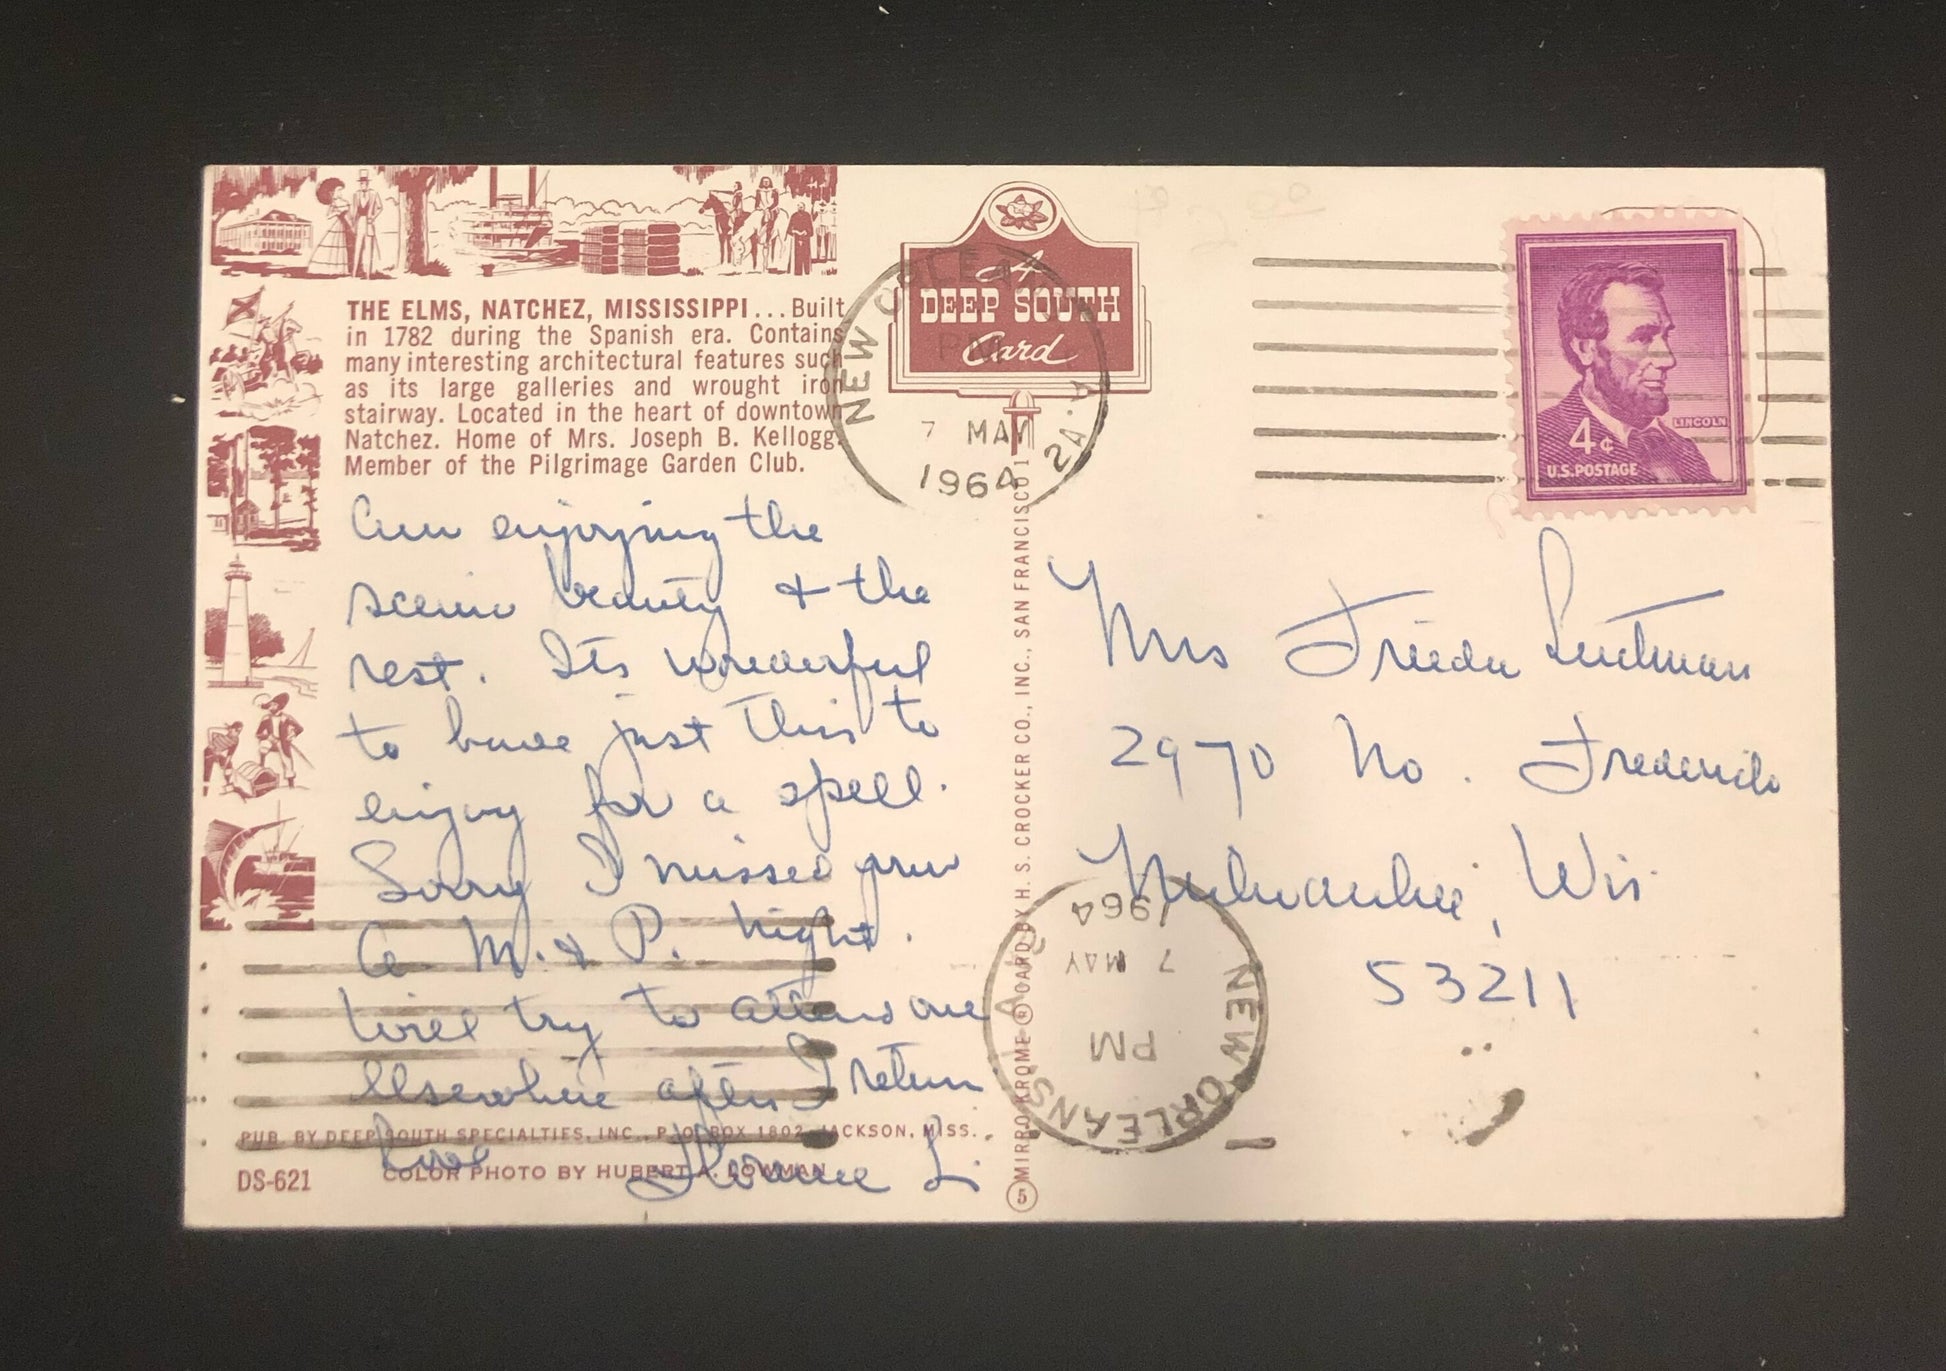 THE ELMS, NATCHEZ, MISSISSIPPI... Built
in 1782 during the Spanish era. Contains
many interesting architectural features such
as its large galleries and wrought iron
stairway. Located in the heart of downtown
Natchez. Home of Mrs. Joseph B. Kellogg.
Member of the Pilgrimage Garden Club.
Am enjoying the
scenic beauty & the
rest. Its wonderful
to have just this to
enjoy for a spell.
Sorry I missed your
M. & P. Night.
Will try to attend one
elsewhere after I return
Love Florence L.
PUB. BY DEEP SOUTH SPECIALTIES, INC., P.O. BOX 1802, JACKSON, MISS.
DS-621
COLOR PHOTO BY HUBERT A. LOWMAN
A
DEEP SOUTH
Card
NEW ORLEANS, LA.
PM
7 MAY
1964
MIRRO-KROME ® CARD BY H. S. CROCKER CO., INC., SAN FRANCISCO 1
5
LINCOLN
4¢
U.S. POSTAGE
Mrs Frieda
2970 No. Frederick
Milwaukee, Wis.
53211
NEW ORLEANS, LA.
PM
7 MAY
1964